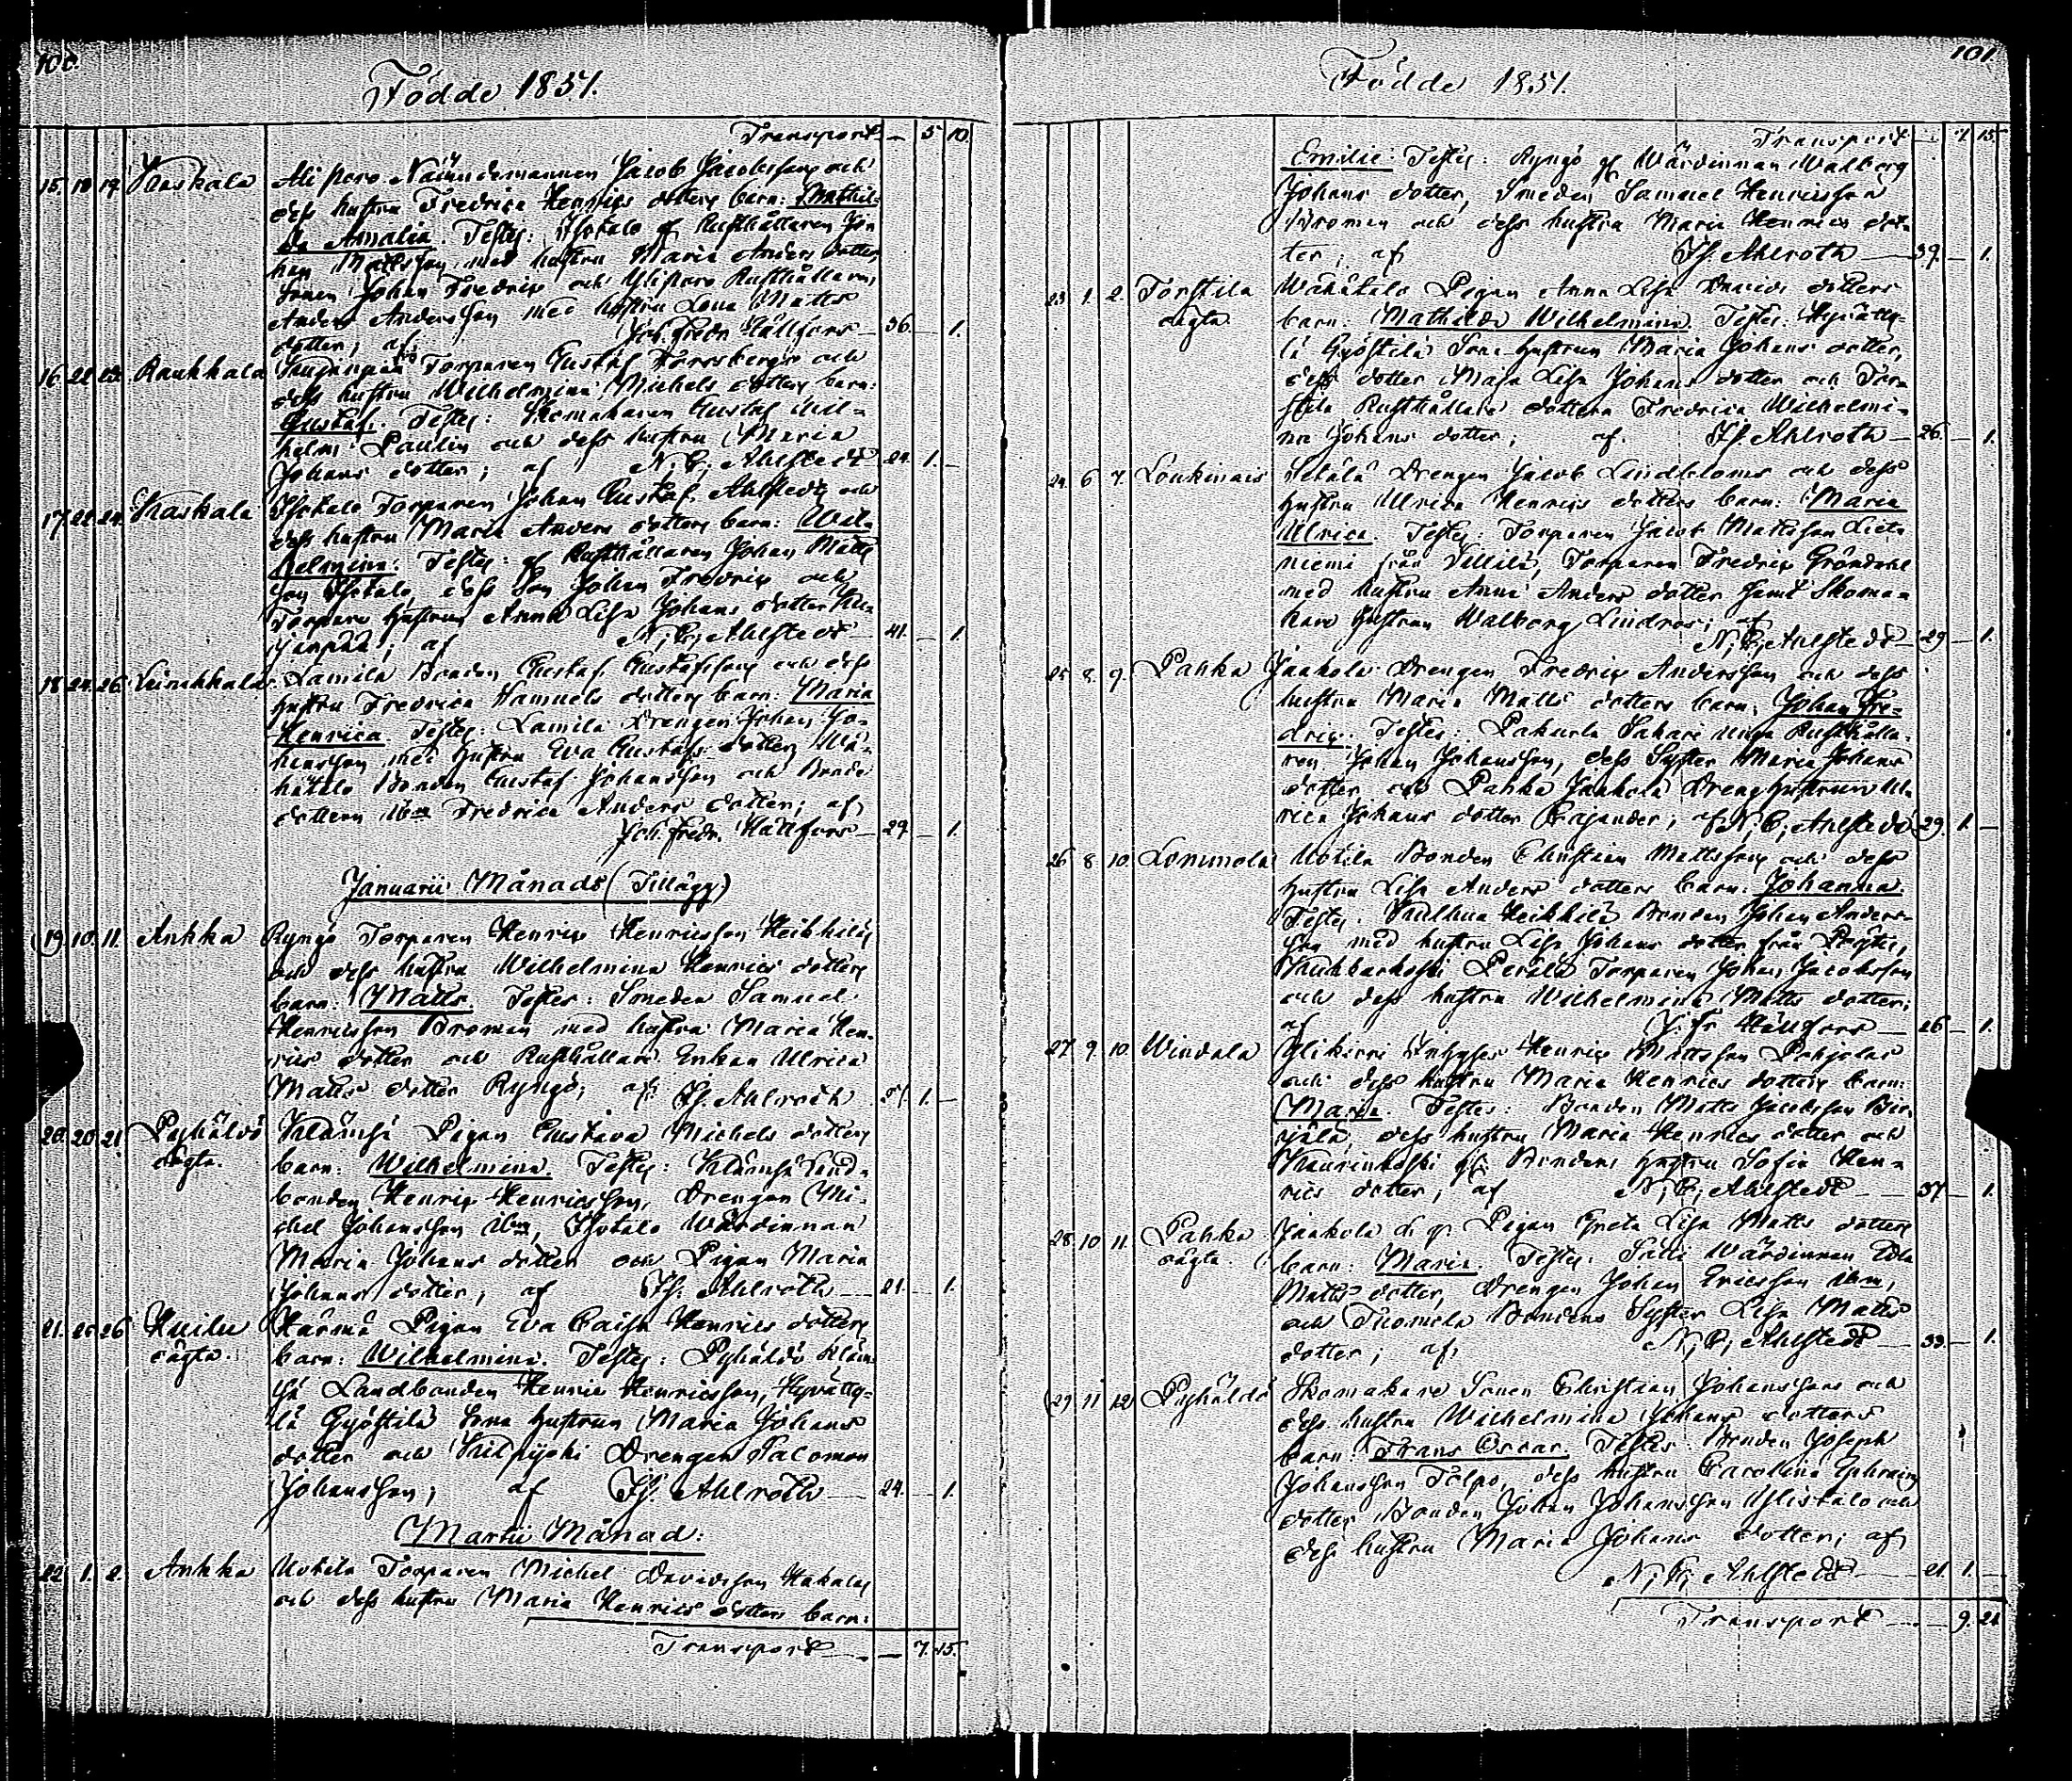 100.
Födde 1851.
Transport — 5 10.
15. 18 19. Kaskala Ali poro Nämndemannen Jacob Jacobsson och
dess hustru Fredrica Henrics dotters barn: Mathil-
da Amalia. Testes: Isotalo Rusthållaren Jo-
han Mattsson med hustru Maria Anders dotter,
Sonen Johan Fredric och Yliporo Rusthållaren
Anders Andersson med hustru Lena Matts
dotter; af Joh. Fredr. Hällfors — 36. — 1.
16. 22 Raukkala Torparen Gustaf Forssbergs och
dess hustru Wilhelmina Michels dotters barn:
Gustaf. Testes: Skomakaren Gustaf Wil-
helm Paulin och dess hustru Maria
Johans dotter; af N. C. Ahlstedt — 24. 1. —
17. 22 24. Kaskala Isotalo Torparen Johan Gustaf Ahlstedts och
dess hustru Maria Anders dotters barn: Wil-
helmina. Testes: Rusthållaren Johan Matts
son Isotalo, dess Son Johan Fredric och
Torpare hustrun Anna Lisa Johans dotter
; af N. C. Ahlstedt — 41. — 1.
18. 24. 26. Leinikkala Lamila Bonden Gustaf Gustafssons och dess
hustru Fredrica Samuels dotters barn: Maria
Henrica. Testes: Lamila Drengen Johan Jo-
hansson med hustru Eva Gustafs dotter, Wä-
hätalo Bonden Gustaf Johansson och Bonde
dottern ibm Fredrica Anders dotter; af
Joh. Fredr. Hällfors — 29. — 1.
Januarii Månads (Tillägg)
19. 10. 11. Ankka Ryngö Torparen Henric Henricsson Heikkiläs
och dess hustru Wilhelmina Henrics dotters
barn: Matts. Testes: Smeden Samuel
Henricsson Broman med hustru Maria Hen-
rics dotter och Rusthållare Enkan Ulrica
Matts dotter Ryngö; af Is. Ahlroth 1. —
20. 20 21. Pyhältö oägta. Klämsä Pigan Gustava Michels dotters
barn: Wilhelmina. Testes: Klämsä Land-
bonden Henric Henricsson, Drengen Mi-
chel Johansson ibm, Isotalo Wärdinnan
Maria Johans dotter och Pigan Maria
Johans dotter, af Is. Ahlroth — 21. — 1.
21. 26 Huilu oägta. Härmä Pigan Eva Caisa Henrics dotters
barn: Wilhelmina. Testes: Pyhältö Kläm-
sä Landbonden Henric Henricsson, Hyvätty-
lä Gyöstilä Sone hustrun Maria Johans
dotter och Kilpijoki Drengen Salomon
Johansson; af Is. Ahlroth — 24. — 1.
Martii Månad:
22. 1. 2. Ankka Uotila Torparen Michel Davidsson Hakalas
och dess hustru Maria Henrics dotters barn:
Transport — 7. 15.
101.
Födde 1851.
Transport — 7. 15.
Emilie. Testes: Ryngö Wärdinnan Walborg
Johans dotter, Smeden Samuel Henricsson
Broman och dess hustru Maria Henrics dot-
ter; af Is. Ahlroth — 39. — 1.
23. 1. 2. Torstila oägta. Wähätalo Pigan Anna Lisa Davids dotters
barn: Mathilda Wilhelmina. Testes: Hyvätty-
lä Gyöstilä Sone hustrun Maria Johans dotter,
dess dotter Maja Lisa Johans dotter och Tor-
stila Rusthållare dottern Fredrica Wilhelmi-
na Johans dotter; af Is. Ahlroth — 26. — 1.
24. 6 7. Loukinais Setälä Drengen Jacob Lindbloms och dess
hustru Ulrica Henrics dotters barn: Maria
Ulrica. Testes: Torparen Jacob Mattsson Lieto
niemi från Tillilä, Torparen Fredric Gröndahl
med hustru Anna Anders dotter samt Skoma-
kare hustrun Walborg Lindros; af
N. C. Ahlstedt — 29 — 1.
25 8. 9. Pahka Jaakola Drengen Fredric Andersson och dess
hustru Maria Matts dotters barn: Johan Fre-
dric. Testes: Pakurla Sakari unga Rusthålla-
ren Johan Johansson, dess Syster Maria Johans
dotter och Pahka Jaakola Dreng hustrun Ul-
rica Johans dotter Cajander; af N. C. Ahlstedt 29. 1. —
26 8 10. Lommola Uotila Bonden Christian Mattssons och dess
hustru Lisa Anders dotters barn: Johanna.
Testes: Heikkilä Bonden Johan Anders-
son med hustru Lisa Johans dotter från Pöytis,
Kuhbarkoski Perälä Torparen Johan Jacobsson
och dess hustru Wilhelmina Matts dotter;
af J. Fr. Hällfors — 26 — 1.
27 9 10. Windala Ylikirri Inhyses Henric Mattsson Pohjolas
och dess hustru Maria Henrics dotters barn:
Maria. Testes: Bonden Matts Jacobsson Bir-
jälä, dess hustru Maria Henrics dotter och
Kaurinkoski Bondens hustru Sofia Hen-
rics dotter; af N. C. Ahlstedt — 37 — 1.
28. 10 11. Pahka oägta. Jaakola d. y. Pigan Greta Lisa Matts dotters
barn: Maria. Testes: Sätti Wärdinnan Edla
Matts dotter, Drengen Johan Ericsson ibm,
och Tuomola Bondens Syster Lisa Matts
dotter; af N. C. Ahlstedt — 33. — 1.
29 11 12 Pyhältö Skomakare Sonen Christian Johanssons och
dess hustru Wilhelmina Johans dotters
barn: Frans Oscar. Testes: Bonden Joseph
Johansson Tolpo, dess hustru Carolina Ephraims
dotter, Bonden Johan Johansson Ylistalo och
dess hustru Maria Johans dotter; af
N. C. Ahlstedt — 21 1. —
Transport — 9. 21